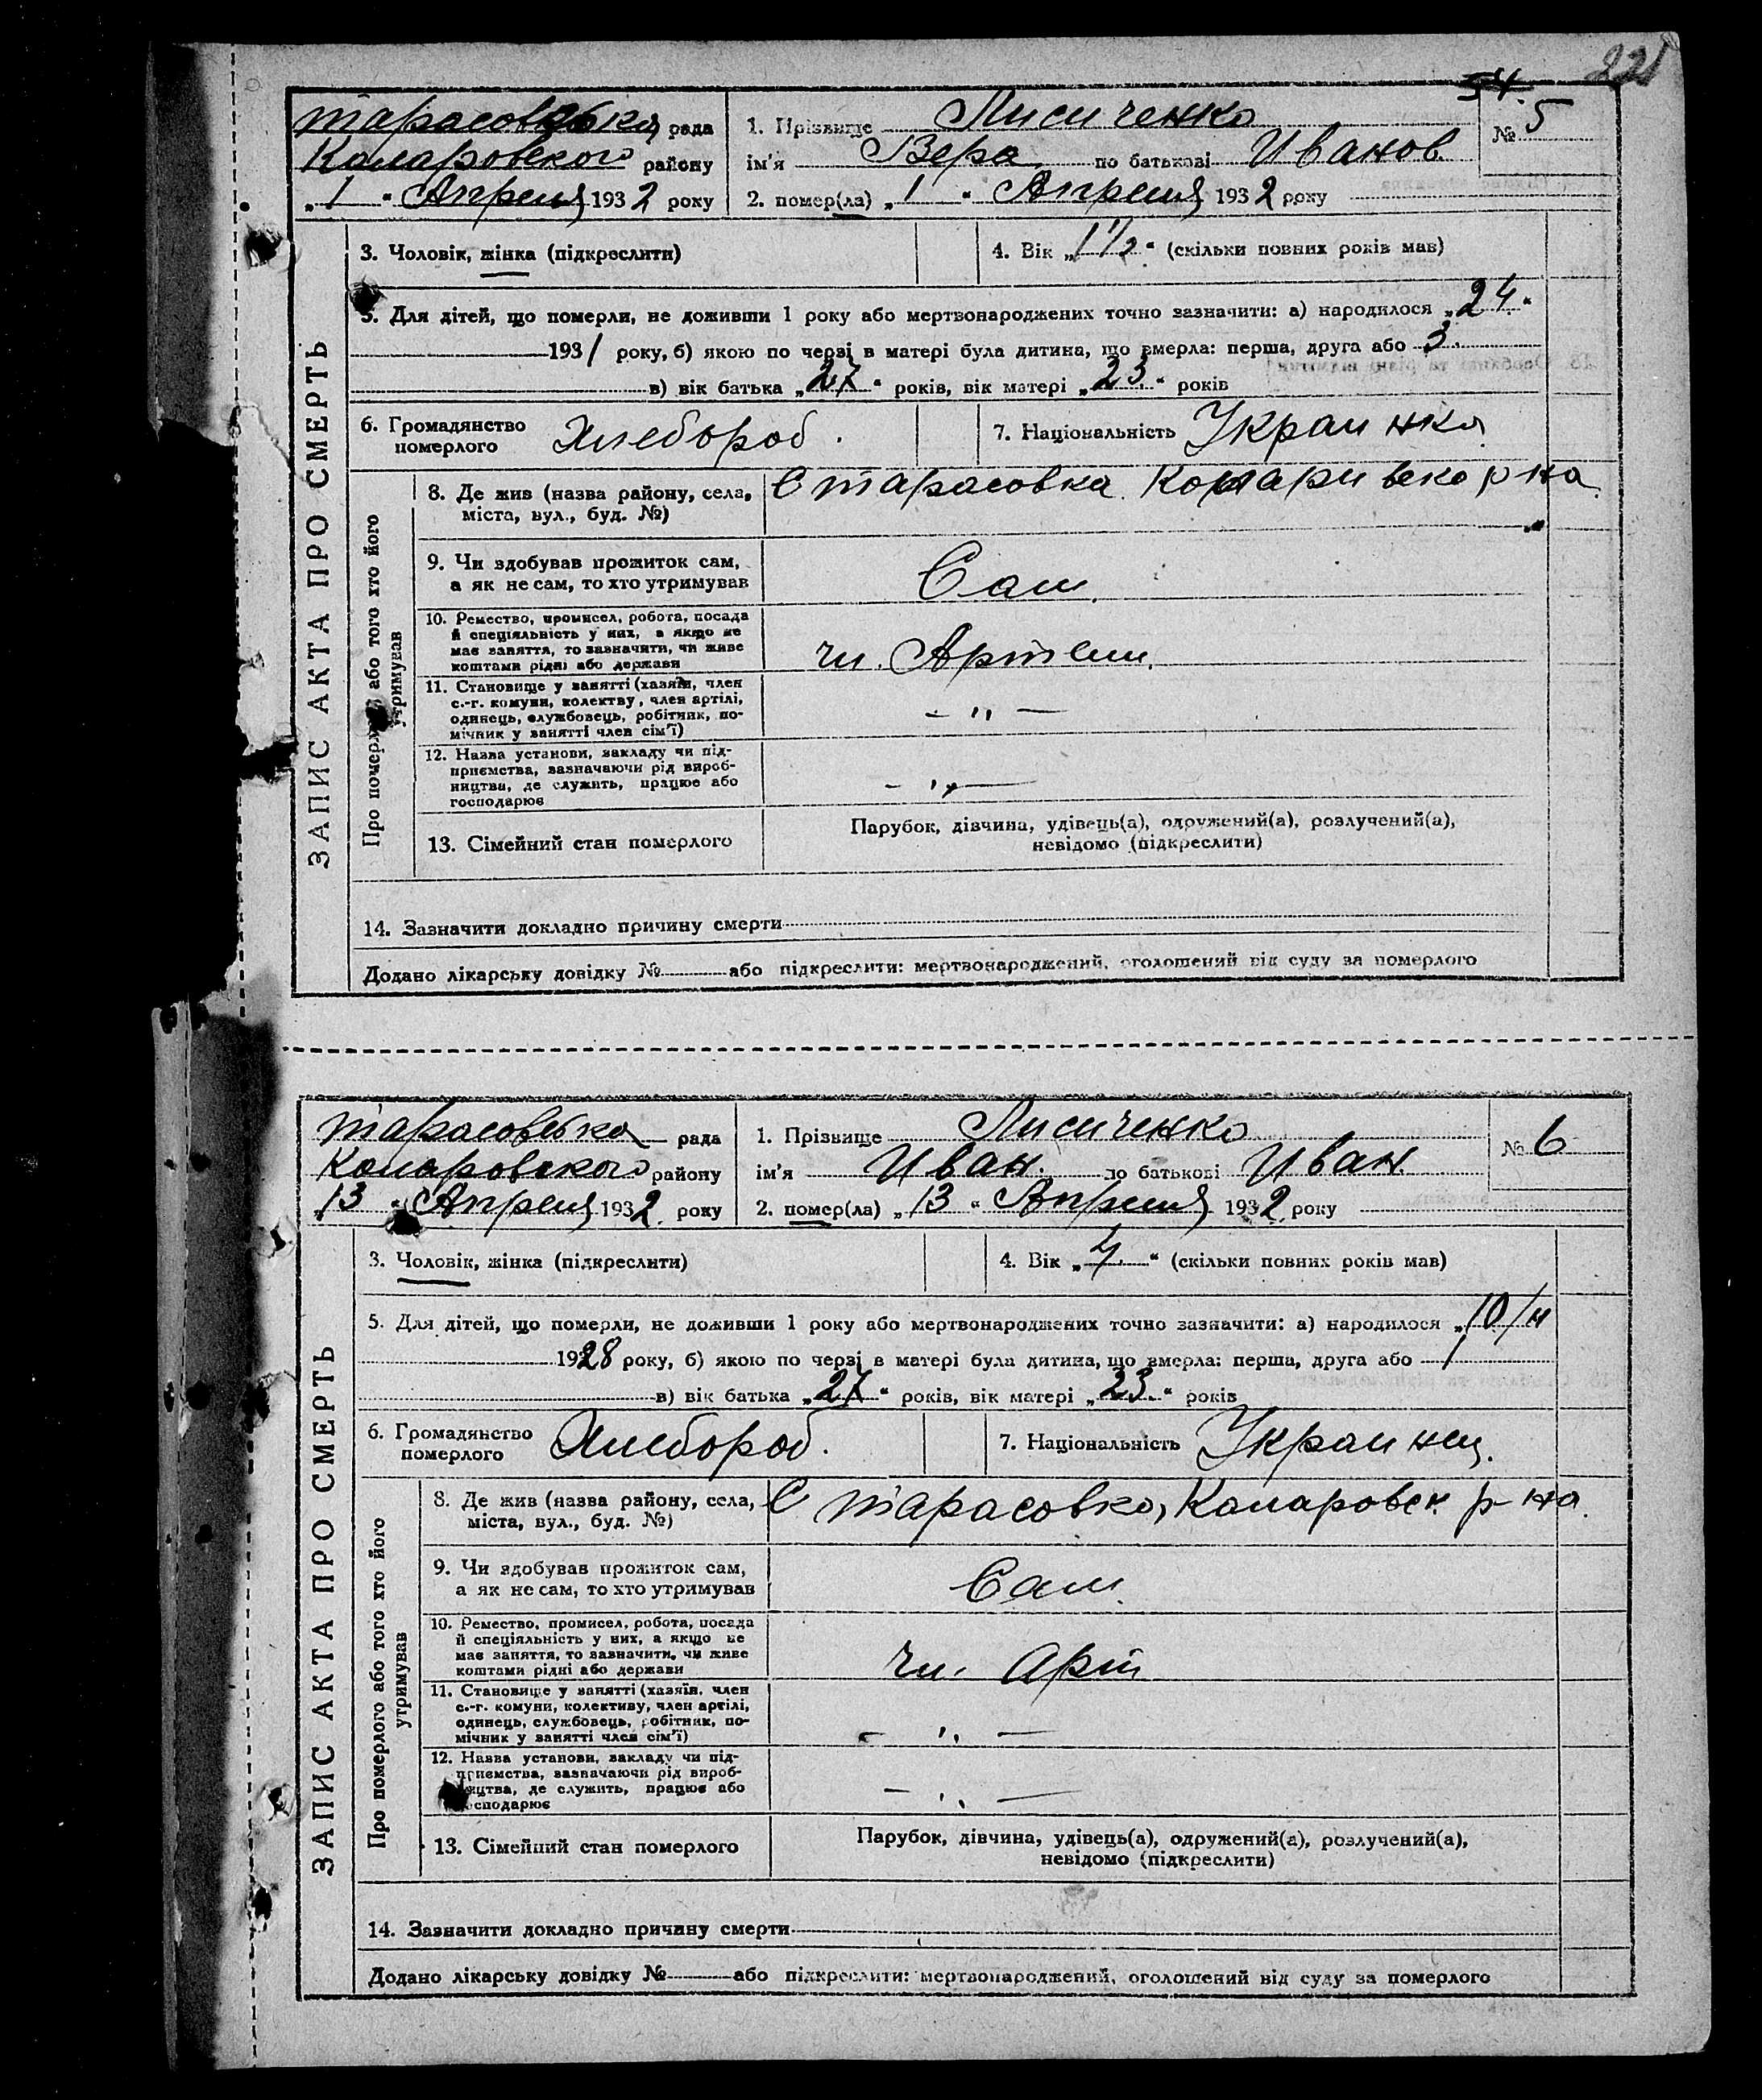 221
54.
Тарасовська рада
Коларовского району
„1" Апреля 1932 року
1. Прізвище Лисиченко
ім'я Вера по батькові Иванов.
2. помер(ла) „1" Апреля 1932 року
№ 5
ЗАПИС АКТА ПРО СМЕРТЬ
3. Чоловік, жінка (підкреслити)
4. Вік „1 1/2" (скільки повних років мав)
5. Для дітей, що померли, не доживши 1 року або мертвонароджених точно зазначити: а) народилося „24"
1931 року, б) якою по черзі в матері була дитина, що вмерла: перша, друга або 3.
в) вік батька „27" років, вік матері „23." років
6. Громадянство
померлого
Хлебороб.
7. Національність Украинка
Про померлого або того хто його
утримував
8. Де жив (назва району, села,
міста, вул., буд. №)
С Тарасовка Коларивско р на.
9. Чи здобував прожиток сам,
а як не сам, то хто утримував
Сам.
10. Ремество, промисел, робота, посада
й спеціяльність у них, а якщо не
має заняття, то зазначити, чи живе
коштами рідні або держави
чл. Артели.
11. Становище у занятті (хазяїн, член
с.-г. комуни, колективу, член артілі,
одинець, службовець, робітник, по-
мічник у занятті член сім'ї)
– " –
12. Назва установи, закладу чи під-
приємства, зазначаючи рід вироб-
ництва, де служить, працює або
господарює
– " –
13. Сімейний стан померлого
Парубок, дівчина, удівець(а), одружений(а), розлучений(а),
невідомо (підкреслити)
14. Зазначити докладно причину смерти
Додано лікарську довідку № або підкреслити: мертвонароджений, оголошений від суду за померлого
Тарасовська рада
Коларовского району
„13" Апреля 1932. року
1. Прізвище Лисиченко
ім'я Иван. по батькові Иван.
2. помер(ла) „13" Апреля 1932 року
№ 6
ЗАПИС АКТА ПРО СМЕРТЬ
3. Чоловік, жінка (підкреслити)
4. Вік „4" (скільки повних років мав)
5. Для дітей, що померли, не доживши 1 року або мертвонароджених точно зазначити: а) народилося „10/II
1928 року, б) якою по черзі в матері була дитина, що вмерла: перша, друга або 1
в) вік батька „27" років, вік матері „23." років
6. Громадянство
померлого
Хлебороб.
7. Національність Украинец.
Про померлого або того хто його
утримував
8. Де жив (назва району, села,
міста, вул., буд. №)
С Тарасовка, Коларовск р-на.
9. Чи здобував прожиток сам,
а як не сам, то хто утримував
Сам.
10. Ремество, промисел, робота, посада
й спеціяльність у них, а якщо не
має заняття, то зазначити, чи живе
коштами рідні або держави
чл. Арт
11. Становище у занятті (хазяїн, член
с.-г. комуни, колективу, член артілі,
одинець, службовець, робітник, по-
мічник у занятті член сім'ї)
– " –
12. Назва установи, закладу чи під-
приємства, зазначаючи рід вироб-
ництва, де служить, працює або
господарює
– " –
13. Сімейний стан померлого
Парубок, дівчина, удівець(а), одружений(а), розлучений(а),
невідомо (підкреслити)
14. Зазначити докладно причину смерти
Додано лікарську довідку № або підкреслити: мертвонароджений, оголошений від суду за померлого